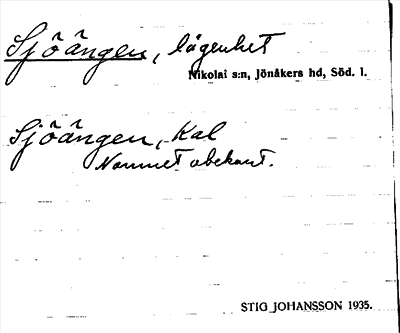 Sjöängen, lägenhet
Nikolai s:n, Jönåkers hd, Söd. l.
Sjöängen, Kal
Namnet obekant.
STIG JOHANSSON 1935.